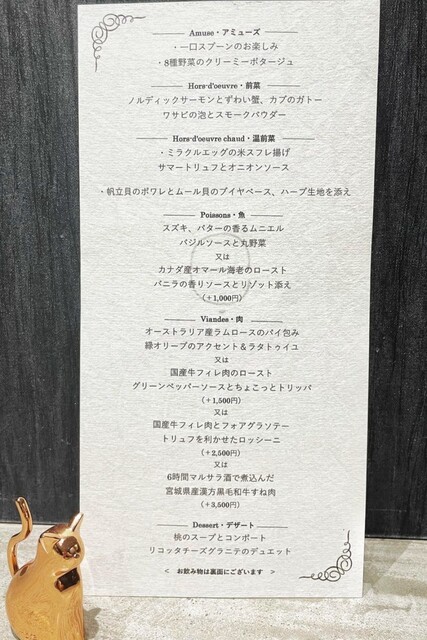 Amuse・アミューズ
・一口スプーンのお楽しみ
・8種野菜のクリーミーポタージュ
Hors-d'oeuvre・前菜
ノルディックサーモンとずわい蟹、カブのガトー
ワサビの泡とスモークパウダー
Hors-d'oeuvre chaud・温前菜
・ミラクルエッグの米スフレ揚げ
サマートリュフとオニオンソース
・帆立貝のポワレとムール貝のブイヤベース、ハーブ生地を添え
Poissons・魚
スズキ、バターの香るムニエル
バジルソースと丸野菜
又は
カナダ産オマール海老のロースト
バニラの香りソースとリゾット添え
(+1,000円)
Viandes・肉
オーストラリア産ラムロースのパイ包み
緑オリーブのアクセント＆ラタトゥイユ
又は
国産牛フィレ肉のロースト
グリーンペッパーソースとちょこっとトリッパ
(+1,500円)
又は
国産牛フィレ肉とフォアグラソテー
トリュフを利かせたロッシーニ
(+2,500円)
又は
6時間マルサラ酒で煮込んだ
宮城県産漢方黒毛和牛すね肉
(+3,500円)
Dessert・デザート
桃のスープとコンポート
リコッタチーズグラニテのデュエット
< お飲み物は裏面にございます >